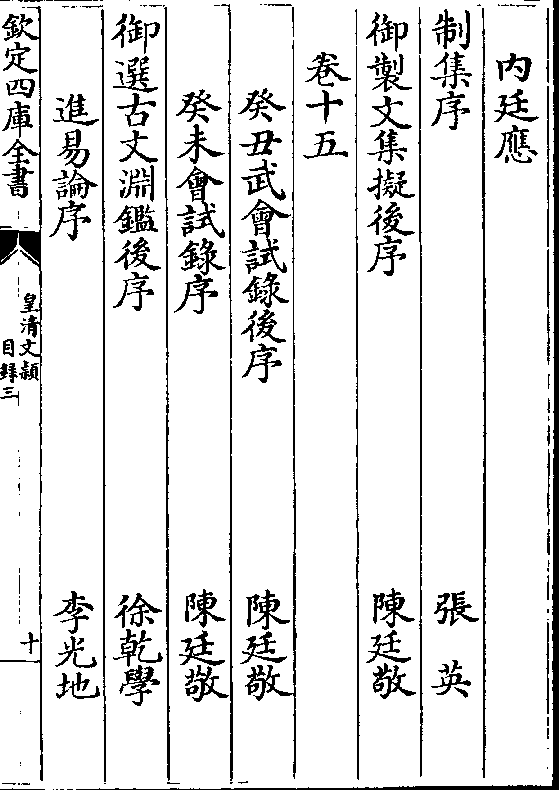 内廷應
制集序 張英
御製文集擬後序 陳廷敬
卷十五
癸丑武會試錄後序 陳廷敬
癸未會試錄序 陳廷敬
御選古文淵鑑後序 徐乾學
進易論序 李光地
欽定四庫全書
皇清文穎
目録三
十